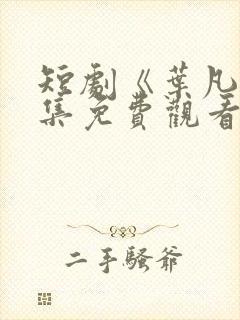 短劇《葉凡
集免費觀看
二手騷爺